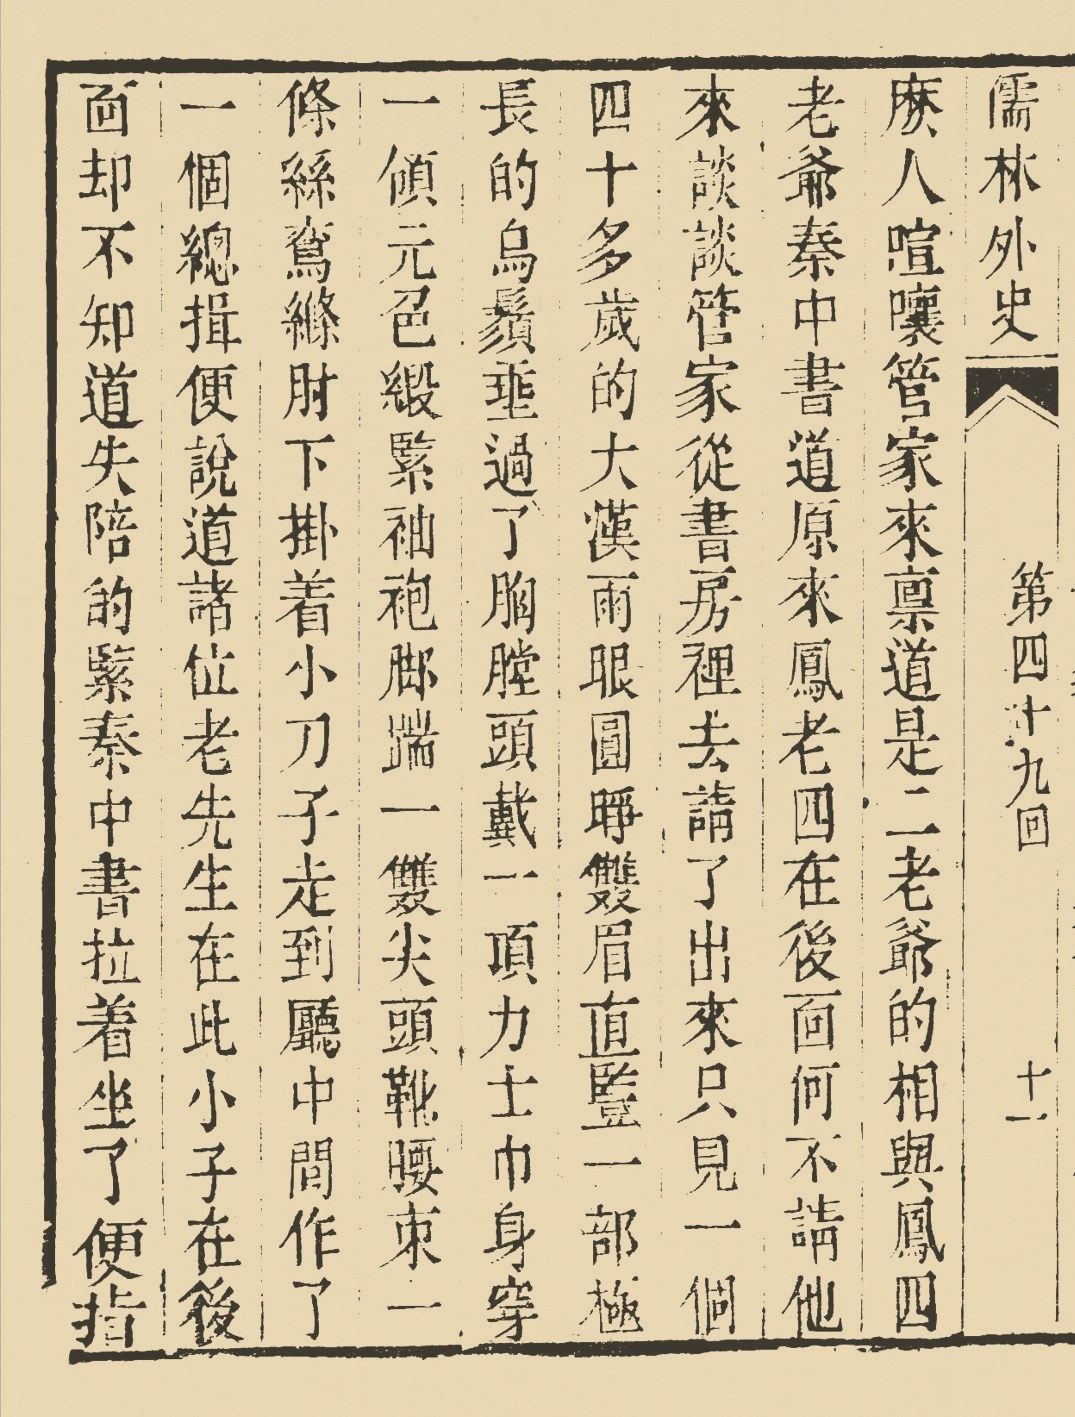 儒林外史
第四十九回
十一
麽人喧嚷管家來禀道是二老爺的相與鳳四
老爺秦中書道原來鳳老四在後面何不請他
來談談管家從書房裡去請了出來只見一個
四十多歲的大漢兩眼圓睜雙眉直豎一部極
長的烏鬚埀過了胸膛頭戴一項力士巾身穿
一領元色緞緊袖袍脚踹一雙尖頭靴腰束一
條絲鸞縧肘下掛着小刀子走到廳中間作了
一個總揖便說道諸位老先生在此小子在後
面却不知道失陪的緊秦中書拉着坐了便指